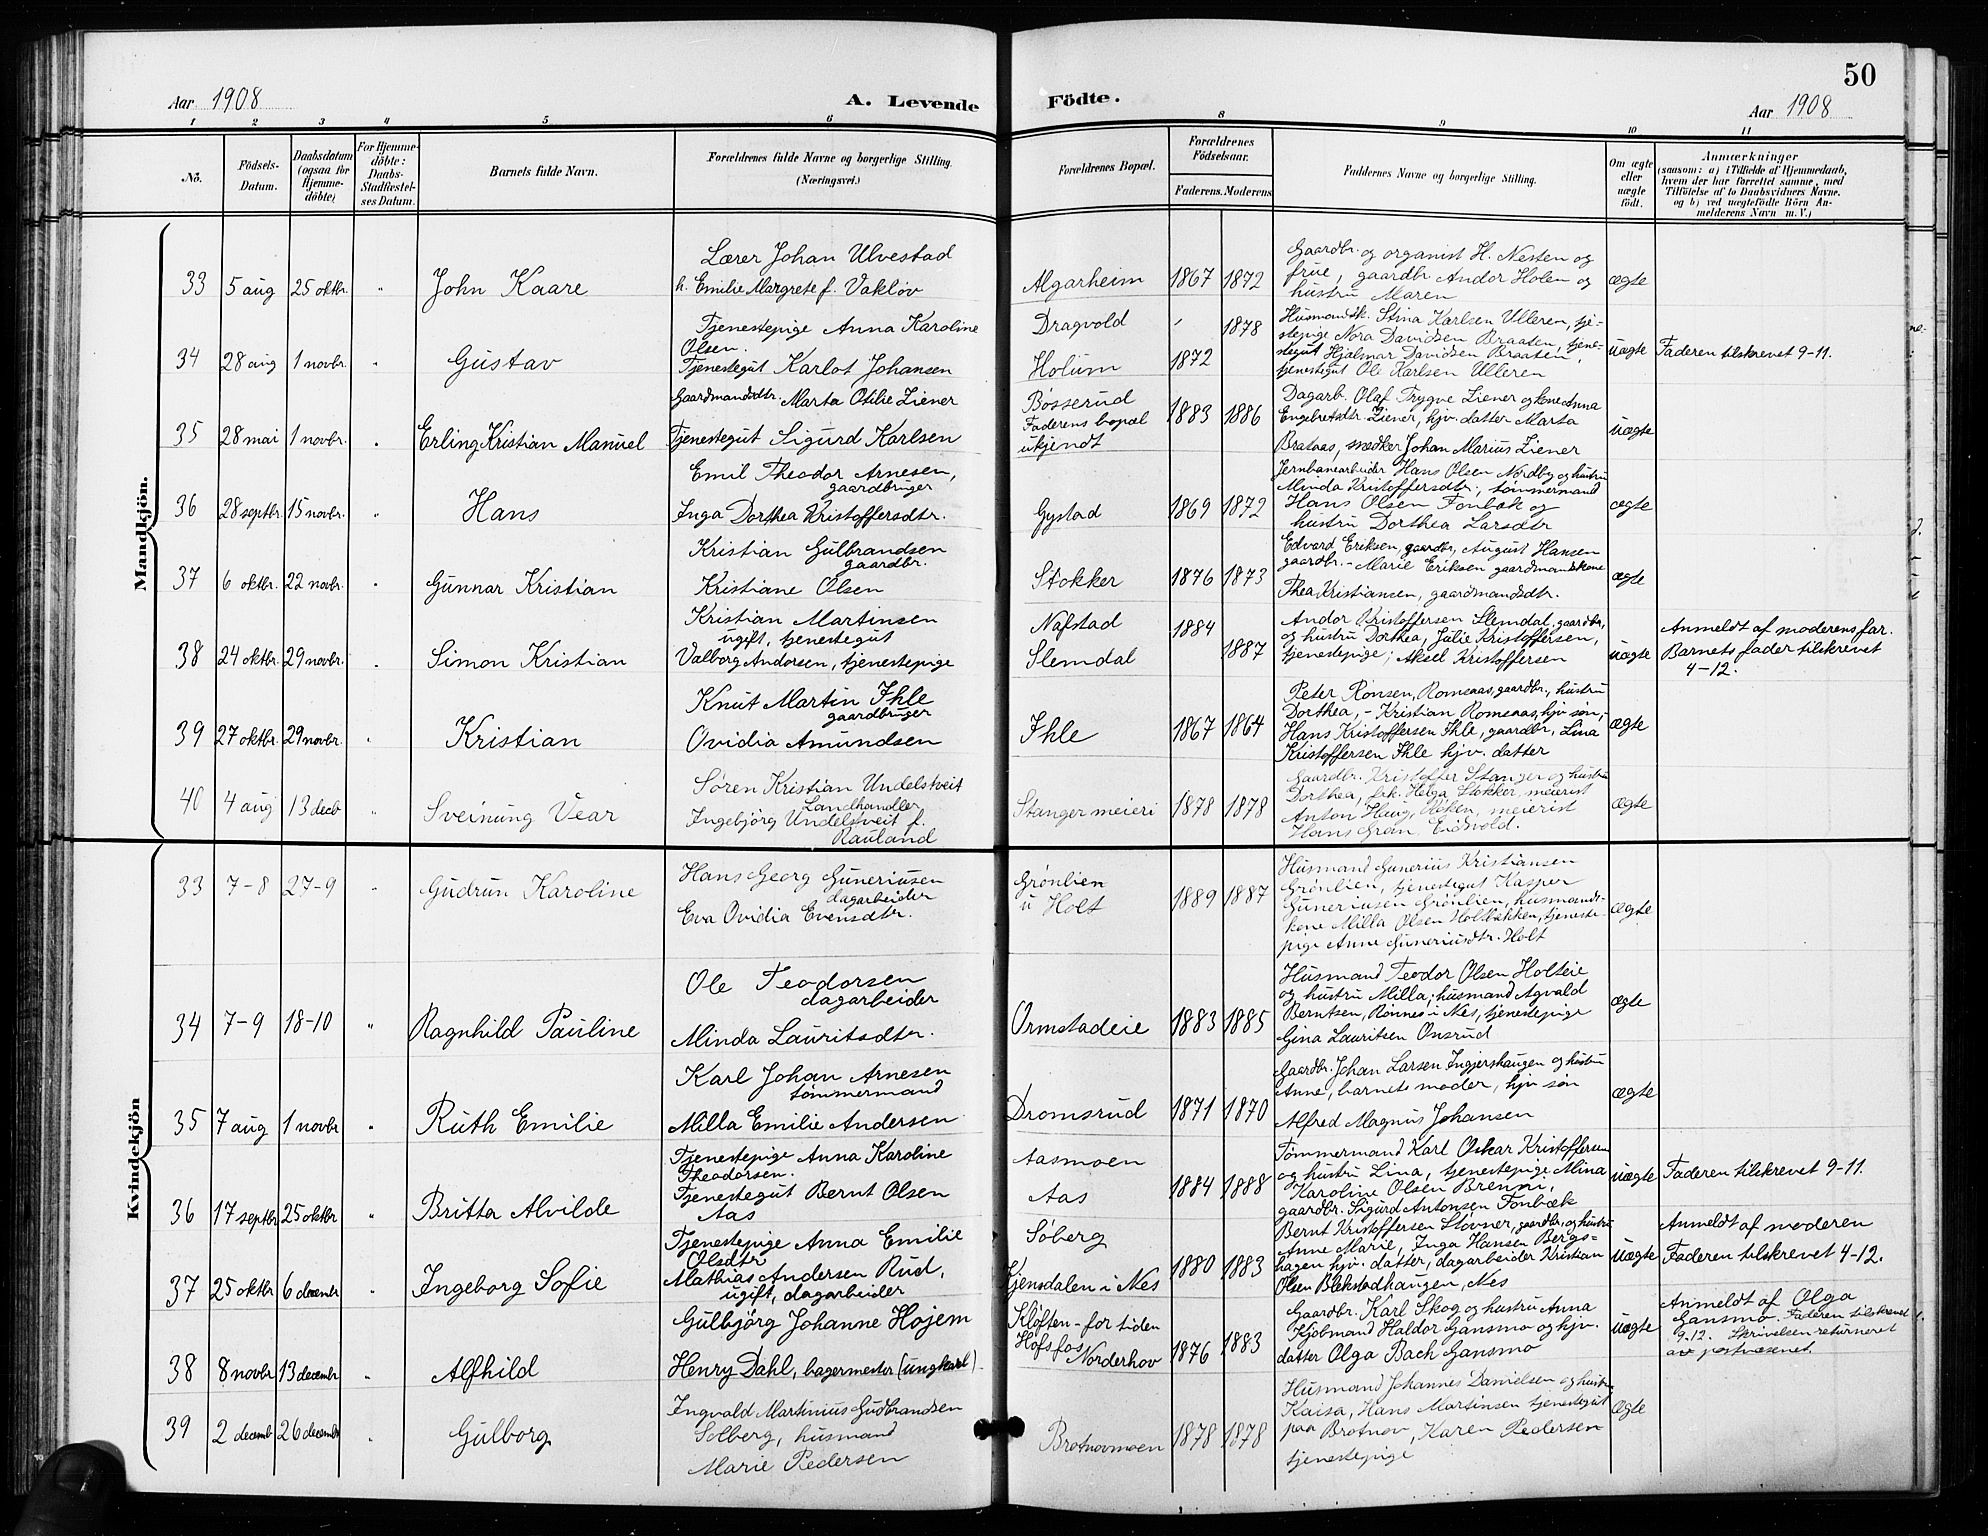 50
Aar 1908
A. Levende
Födte.
Aar 1908
1 2 3 4 5 6 8 9 10 11
No.
Födsels-
Datum.
Daabsdatum
(ogsaa for
Hjemme-
döbte)
For Hjemme-
döbte:
Daabs-
Stadfæstel-
ses Datum.
Barnets fulde Navn.
Forældrenes fulde Navne og borgerlige Stilling.
(Næringsvei.)
Forældrenes Bopæl.
Forældrenes
Födselsaar.
Faderens. Moderens.
Faddernes Navne og borgerlige Stilling.
Om ægte
eller
uægte
födt.
Anmærkninger
(saasom: a) i Tilfælde af Hjemmedaab,
hvem der har forrettet samme, med
Tilföielse af to Daabsvidners Navne.
og b) ved uægtefödte Börn An-
melderens Navn m. V.)
Mandkjön.
33 5 aug 25 oktbr. " John Kaare
Lærer Johan Ulvestad
h. Emilie Margrete f. Vakløv
Algarheim 1867 1872
Gaardbr. og organist H. Nesten og
frue, gaardbr Andor Holen og
hustru Maren
ægte
34 28 aug 1 novbr. " Gustav
Tjenestepige Anna Karoline
Olsen.
Tjenestegut Karlot Johansen
Dragvold 1878
Holum 1872
Husmandsk. Stina Karlsen Ulleren, tje-
stepige Nora Davidsen Braaten, tjene-
stegut Hjalmar Davidsen Braaten,
tjenestegut Ole Karlsen Ulleren
uægte Faderen tilskrevet 9-11.
35 28 mai 1 novbr. " Erling Kristian Manuel
Gaardmandsdtr. Marta Otilie Ziener
Tjenestegut Sigurd Karlsen
Bosserud
Faderens bopæl
ukjendt
1883 1886
Dagarb. Olaf Trygve Ziener og kone Anna
Engebretsdtr. Ziener, hjv. datter Marta
Brataas, snedker Johan Marius Ziener
uægte
36 28 septbr. 15 novbr. " Hans
Emil Theodor Arnesen,
gaardbruger
Inga Dorthea Kristoffersdtr.
Gystad 1869 1872
Jernbanearbeider Hans Olsen Nordby og hustru
Minda Kristoffersdtr., tømmermand
Hans Olsen Fonbæk og
hustru Dorthea Larsdtr
ægte
37 6 oktbr. 22 novbr. " Gunnar Kristian
Kristian Gulbrandsen
gaardbr.
Kristiane Olsen
Stokker 1876 1873
Edvard Eriksen, gaardbr, August Hansen
gaardbr. - Marie Eriksen gaardmandskone
Thea Kristiansen, gaardmandsdtr.
ægte
38 24 oktbr. 29 novbr. " Simon Kristian
Kristian Martinsen
ugift, tjenestegut
Valborg Andorsen, tjenestepige
Nafstad 1884
Slemdal 1887
Andor Kristoffersen Slemdal, gaardbr,
og hustru Dorthea, Julie Kristoffersen,
tjenestepige; Aksel Kristoffersen
uægte
Anmeldt af moderens far.
Barnets fader tilskrevet
4-12.
39 27 oktbr. 29 novbr. " Kristian
Knut Martin Ihle
gaardbruger
Ovidia Amundsen
Ihle 1867 1864
Peter Ronsen, Romsaas, gaardbr, hustru
Dorthea, - Kristian Romsaas, hjv. søn, -
Hans Kristoffersen Ihle, gaardbr, Lina
Kristoffersen Ihle hjv. datter
ægte
40 4 aug 13 decb " Sveinung Vear
Søren Kristian Undelstveit
Landhandler
Ingebjørg Undelstveit f.
Rauland
Stanger meieri 1878 1878
Gaardbr. Kristoffer Stanger og hustru
Dorthea, frk. Helga Stokker, meierist
Anton Haug, Røken, meierist
Hans Gran, Eidsvold.
ægte
Kvindekjön
33 7-8 27-9 " Gudrun Karoline
Hans Georg Guneriusen
dagarbeider
Eva Ovidia Evensdtr.
Grønlien
u Holt
1889 1887
Husmand Gunerius Kristiansen
Grønlien, tjenestegut Kasper
Guneriusen Grønlien, husmands-
kone Milla Olsen Holtbakken, tjeneste-
pige Anne Guneriusdtr. Holt
ægte
34 7-9 18-10 " Ragnhild Pauline
Ole Teodorsen
dagarbeider
Minda Lauritsdtr.
Ormstadeie 1883 1885
Husmand Teodor Olsen Holteie
og hustru Milla, husmand Agvald
Berntsen, Rønnes i Nes, tjenestepige
Gina Lauritsen Onsrud
ægte
35 7 aug 1 novbr " Ruth Emilie
Karl Johan Arnesen
tømmermand
Milla Emilie Andersen
Dromsrud 1871 1870
Gaardbr. Johan Larsen Ingjershaugen og hustru
Anne, barnets moder, hjv. søn
Alfred Magnus Johansen
ægte
36 17 septbr 25 oktbr " Britta Alvilde
Tjenestepige Anna Karoline
Theodorsen.
Tjenestegut Bernt Olsen
Aas
Aasmoen
Aas
1884 1888
Tømmermand Karl Oskar Kristoffersen
og hustru Lina, tjenestepige Mina
Karoline Olsen Brenni,
gaardbr. Sigurd Antonsen Fonbæk
uægte Faderen tilskrevet 9-11.
37 25 oktbr 6 decembr " Ingeborg Sofie
Tjenestepige Anna Emilie
Olsdtr
Mathias Andersen Rud,
ugift, dagarbeider
Søberg
Kjensdalen i Nes
1880 1883
Bernt Kristoffersen Støvner, gaardbr, og hustru
Anne Marie, Inga Hansen Bergs-
hagen hjv. datter, dagarbeider Kristian
Olsen Blekstadhaugen, Nes
uægte
Anmeldt af moderen
Faderen tilskrevet 4-12.
38 8 novbr 13 decembr " Alfhild
Gulbjörg Johanne Højem
Henry Dahl, bagermester (ungkarl)
Kløften - for tiden
Hofsfos
Norderhov
1876 1883
Gaardbr. Karl Skog og hustru Anna
Kjøbmand Haldor Gansmo og hjv.
datter Olga Bach Gansmo
uægte
Anmeldt af Olga
Gansmo. Faderen tilskrevet
9-12. Skrivelsen returneret
av postvæsenet.
39 2 decemb 26 decembr " Gulborg
Ingvald Martinius Gudbrandsen
Solberg, husmand
Marie Pedersen
Brotnovmoen 1878 1878
Husmand Johannes Danielsen og hustru
Kaisa, Hans Martinsen tjenestegut
paa Brotnov, Karen Pedersen
tjenestepige
ægte